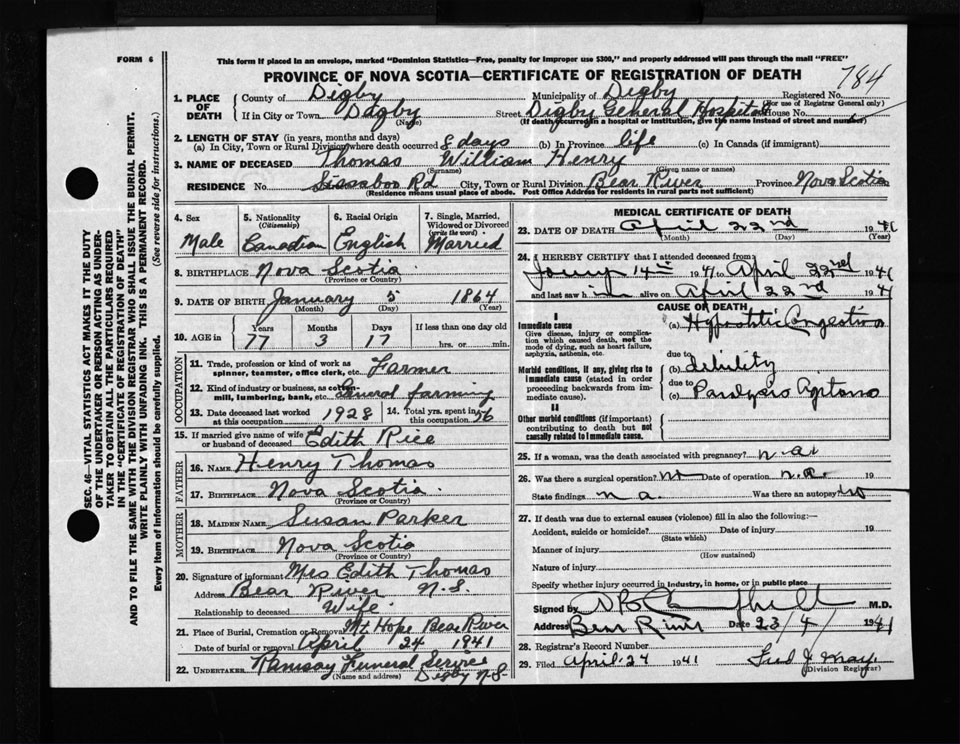 FORM 6
This form if placed in an envelope, marked "Dominion Statistics—Free, penalty for improper use $300," and properly addressed will pass through the mail "FREE"
PROVINCE OF NOVA SCOTIA—CERTIFICATE OF REGISTRATION OF DEATH
784
SEC. 46—VITAL STATISTICS ACT MAKES IT THE DUTY
OF THE UNDERTAKER OR PERSON ACTING AS UNDER-
TAKER TO OBTAIN ALL THE PARTICULARS REQUIRED
IN THE "CERTIFICATE OF REGISTRATION OF DEATH"
AND TO FILE THE SAME WITH THE DIVISION REGISTRAR WHO SHALL ISSUE THE BURIAL PERMIT.
WRITE PLAINLY WITH UNFADING INK. THIS IS A PERMANENT RECORD.
Every item of information should be carefully supplied. (See reverse side for instructions.)
1. PLACE OF DEATH
County of Digby Municipality of Digby Registered No.
(For use of Registrar General only)
If in City or Town Digby Street Digby General Hospital House No.
(Name) (If death occurred in a hospital or institution, give the name instead of street and number)
2. LENGTH OF STAY (in years, months and days)
(a) In City, Town or Rural Division where death occurred 8 days (b) In Province life (c) In Canada (if immigrant)
3. NAME OF DECEASED Thomas William Henry
(Surname) (Given name or names)
RESIDENCE No. Sissaboo Rd City, Town or Rural Division Bear River Province Nova Scotia
(Residence means usual place of abode. Post Office Address for residents in rural parts not sufficient)
4. Sex
Male
5. Nationality
(Citizenship)
Canadian
6. Racial Origin
English
7. Single, Married,
Widowed or Divorced
(write the word)
Married
8. BIRTHPLACE Nova Scotia
(Province or Country)
9. DATE OF BIRTH January 5 1864
(Month) (Day) (Year)
10. AGE in Years Months Days If less than one day old
77 3 17 hrs. or min.
OCCUPATION
11. Trade, profession or kind of work as
spinner, teamster, office clerk, etc. Farmer
12. Kind of industry or business, as cotton-
mill, lumbering, bank, etc. General farming
13. Date deceased last worked
at this occupation 1928
14. Total yrs. spent in
this occupation 56
15. If married give name of wife
or husband of deceased Edith Rice
FATHER
16. NAME Henry Thomas
17. BIRTHPLACE Nova Scotia
(Province or Country)
MOTHER
18. MAIDEN NAME Susan Parker
19. BIRTHPLACE Nova Scotia
(Province or Country)
20. Signature of informant Mrs Edith Thomas
Address Bear River N.S.
Relationship to deceased Wife
21. Place of Burial, Cremation or Removal Mt Hope Bear River
Date of burial or removal April 24 1941
22. UNDERTAKER Ramsay Funeral Service
(Name and address) Digby N.S.
MEDICAL CERTIFICATE OF DEATH
23. DATE OF DEATH April 22nd 1941
(Month) (Day) (Year)
24. I HEREBY CERTIFY that I attended deceased from
14th 1941 to April 22nd 1941
and last saw him alive on April 22nd 1941
CAUSE OF DEATH
I
Immediate cause
Give disease, injury or complica-
tion which caused death, not the
mode of dying, such as heart failure,
asphyxia, asthenia, etc.
(a) Hypostatic Congestion
due to
Morbid conditions, if any, giving rise to
immediate cause (stated in order
proceeding backwards from im-
mediate cause).
(b) debility
due to
(c) Paralysis Agitans
II
Other morbid conditions (if important)
contributing to death but not
causally related to immediate cause.
25. If a woman, was the death associated with pregnancy? n.a.
26. Was there a surgical operation? no Date of operation n.a. 19
State findings n a. Was there an autopsy? no
27. If death was due to external causes (violence) fill in also the following:—
Accident, suicide or homicide? Date of injury 19
(State which)
Manner of injury
(How sustained)
Nature of injury
Specify whether injury occurred in industry, in home, or in public place
Signed by M.D.
Address Bear River Date 23/4/1941
28. Registrar's Record Number
29. Filed April 24 1941 Fred J May
Division Registrar)